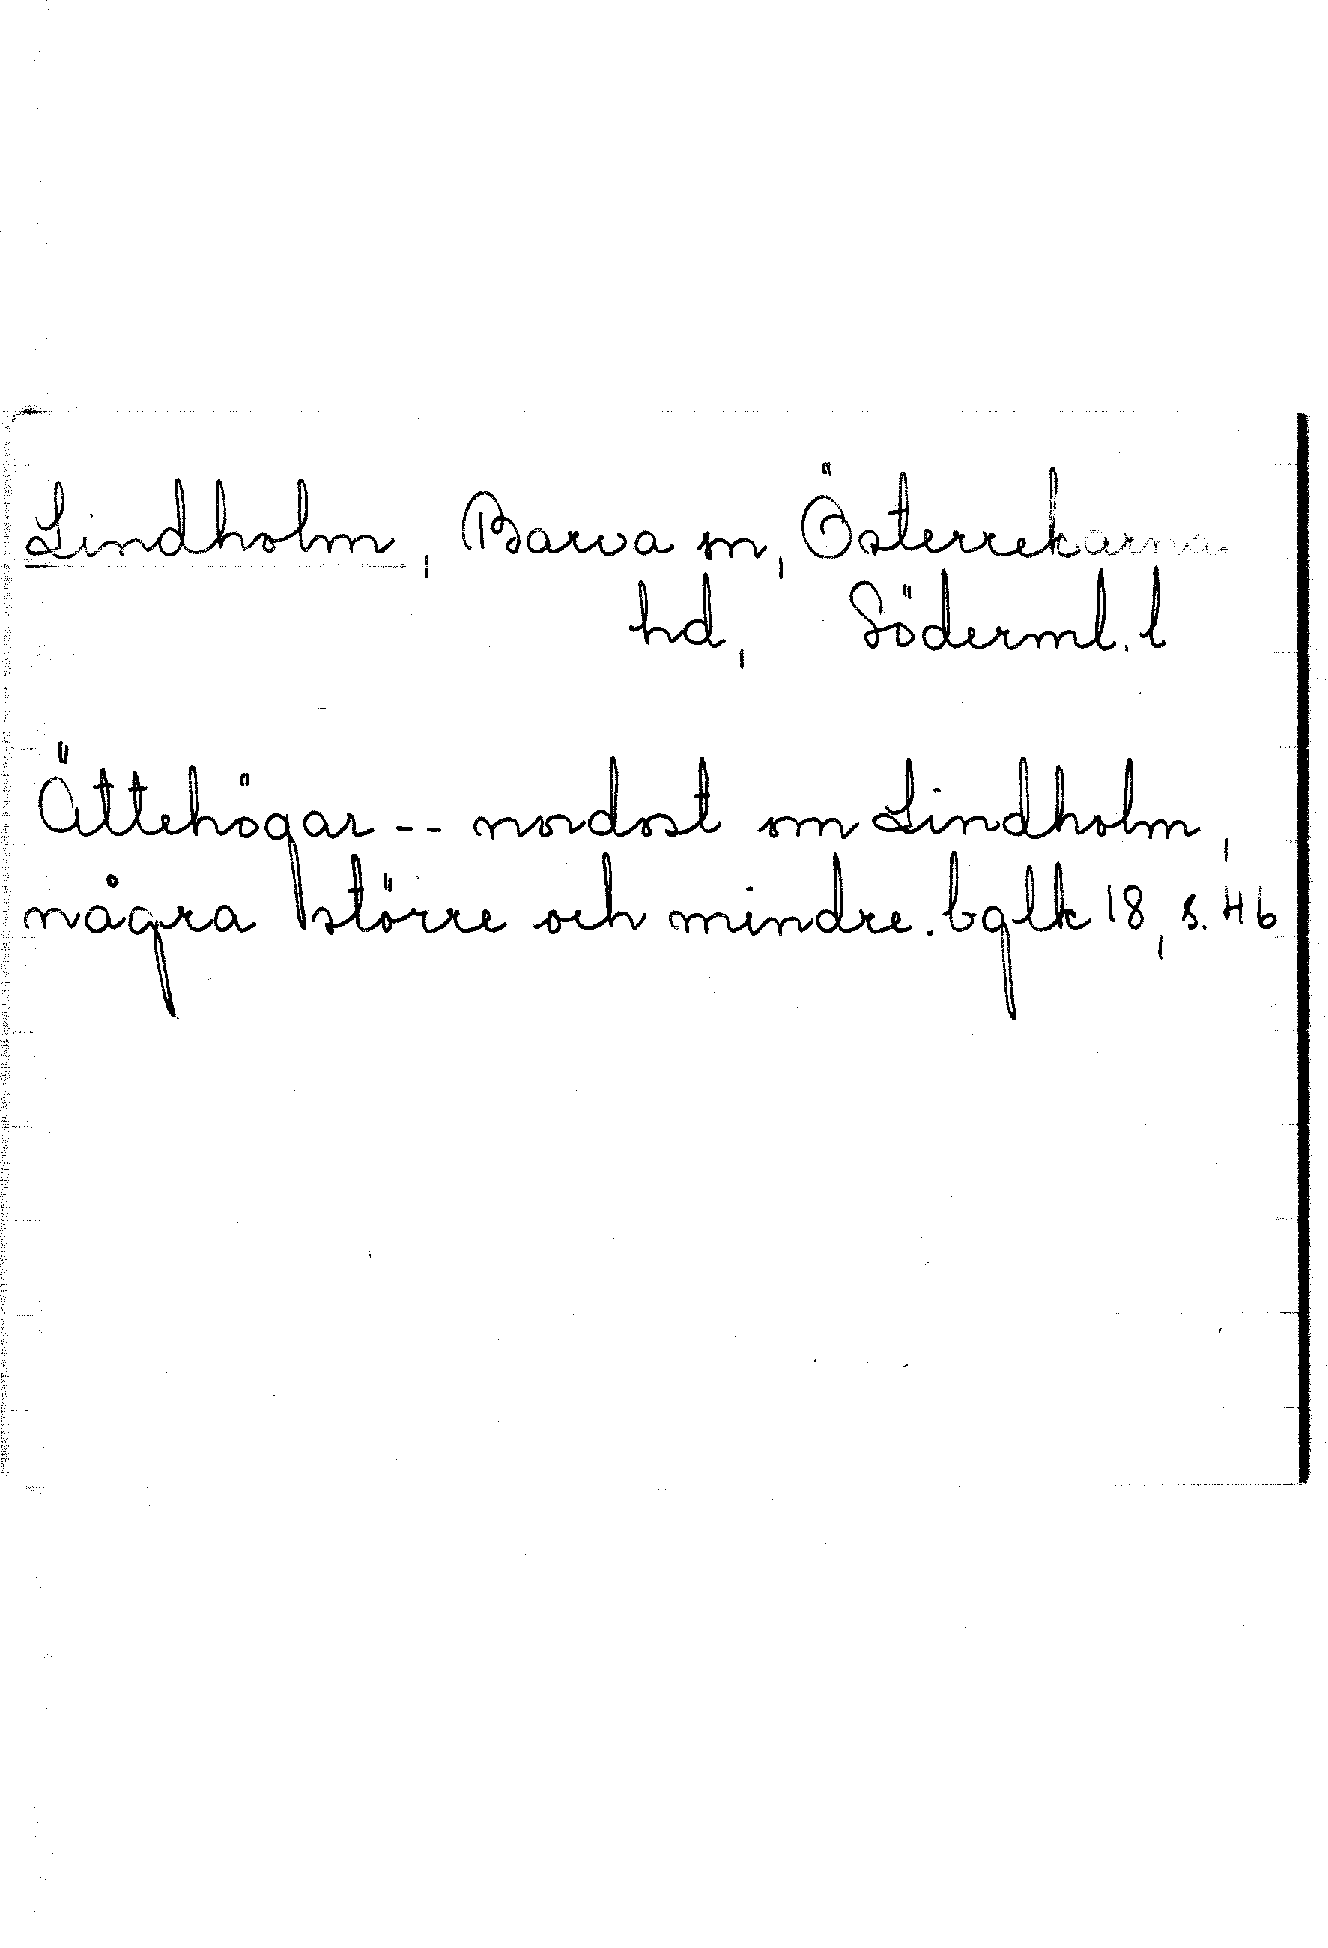 Lindholm, Barva sn, Österrekarna
hd, Söderml. l
Ättehögar -- nordost om Lindholm,
några större och mindre. bglk 18, s. 46